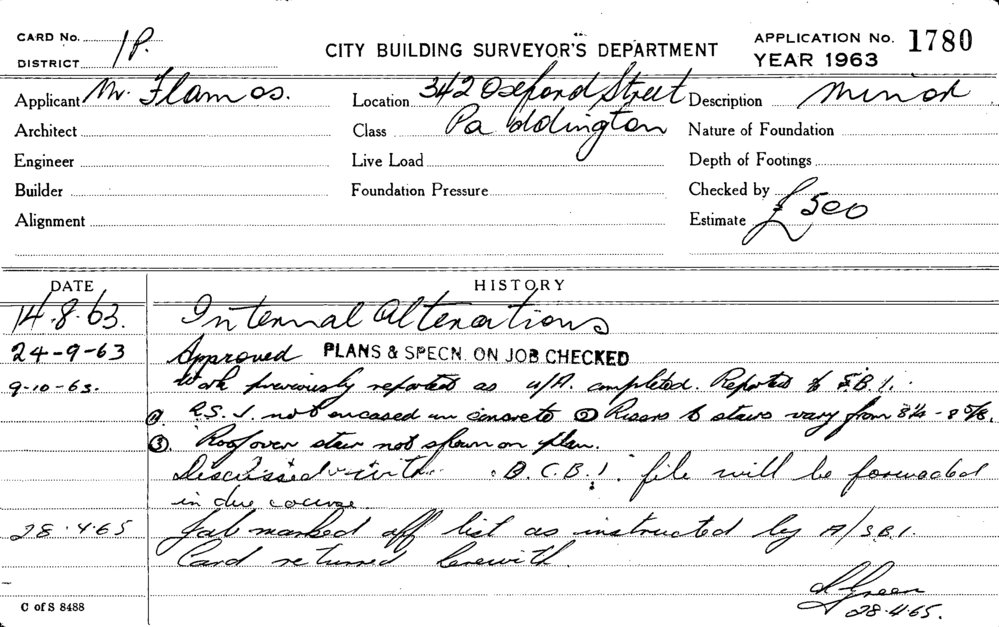 CARD No. 1P.
DISTRICT
CITY BUILDING SURVEYOR'S DEPARTMENT
APPLICATION No. 1780
YEAR 1963
Applicant Mr. Flamos.
Location 342 Oxford Street
Description Minor
Architect
Class Paddington
Nature of Foundation
Engineer
Live Load
Depth of Footings
Builder
Foundation Pressure
Checked by
Alignment
Estimate £500
DATE
HISTORY
14.8.63. Internal Alterations
24-9-63 Approved PLANS & SPECN. ON JOB CHECKED
9-10-63. Work previously reported as u/A. completed. Reported to S.B.I.
① R.S.J. not encased in concrete ② Risers to stairs vary from 8¼ - 8⅝.
③ Roof over stair not shown on plan.
Discussed with D.C.B.I. file will be forwarded
in due course.
28.4.65 Job marked off list as instructed by A/S.B.I.
Card returned herewith.
Green
28.4.65.
C of S 8488